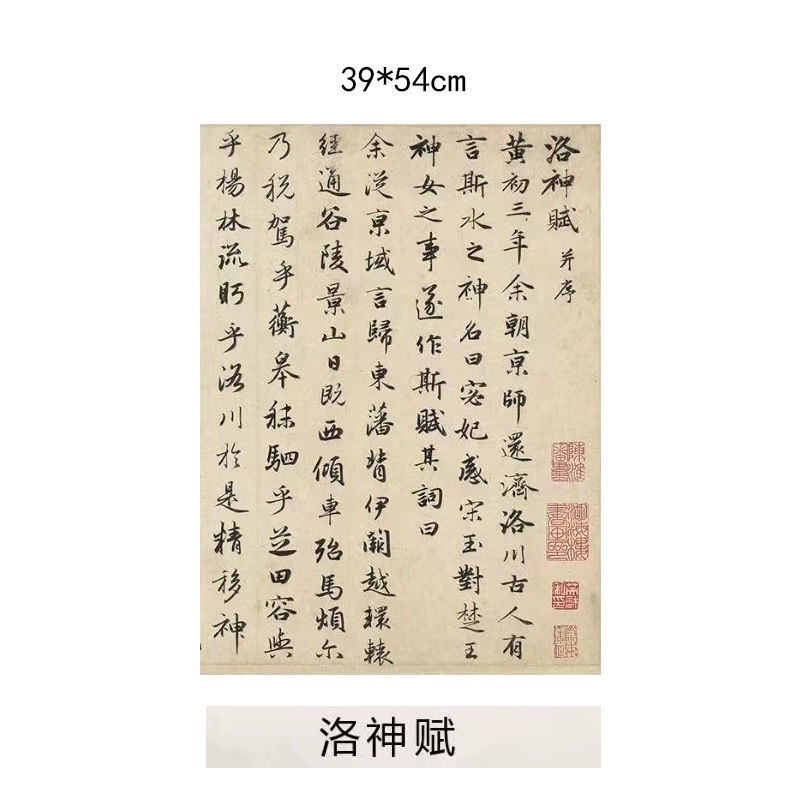 39*54cm
洛神賦 并序
黄初三年余朝京師還濟洛川古人有
言斯水之神名曰宓妃感宋玉對楚王
神女之事遂作斯賦其詞曰
余從京域言歸東藩背伊闕越轘轅
經通谷陵景山日既西傾車殆馬煩尔
乃税駕乎蘅皋秣駟乎芝田容與
乎楊林流眄乎洛川於是精移神
洛神赋